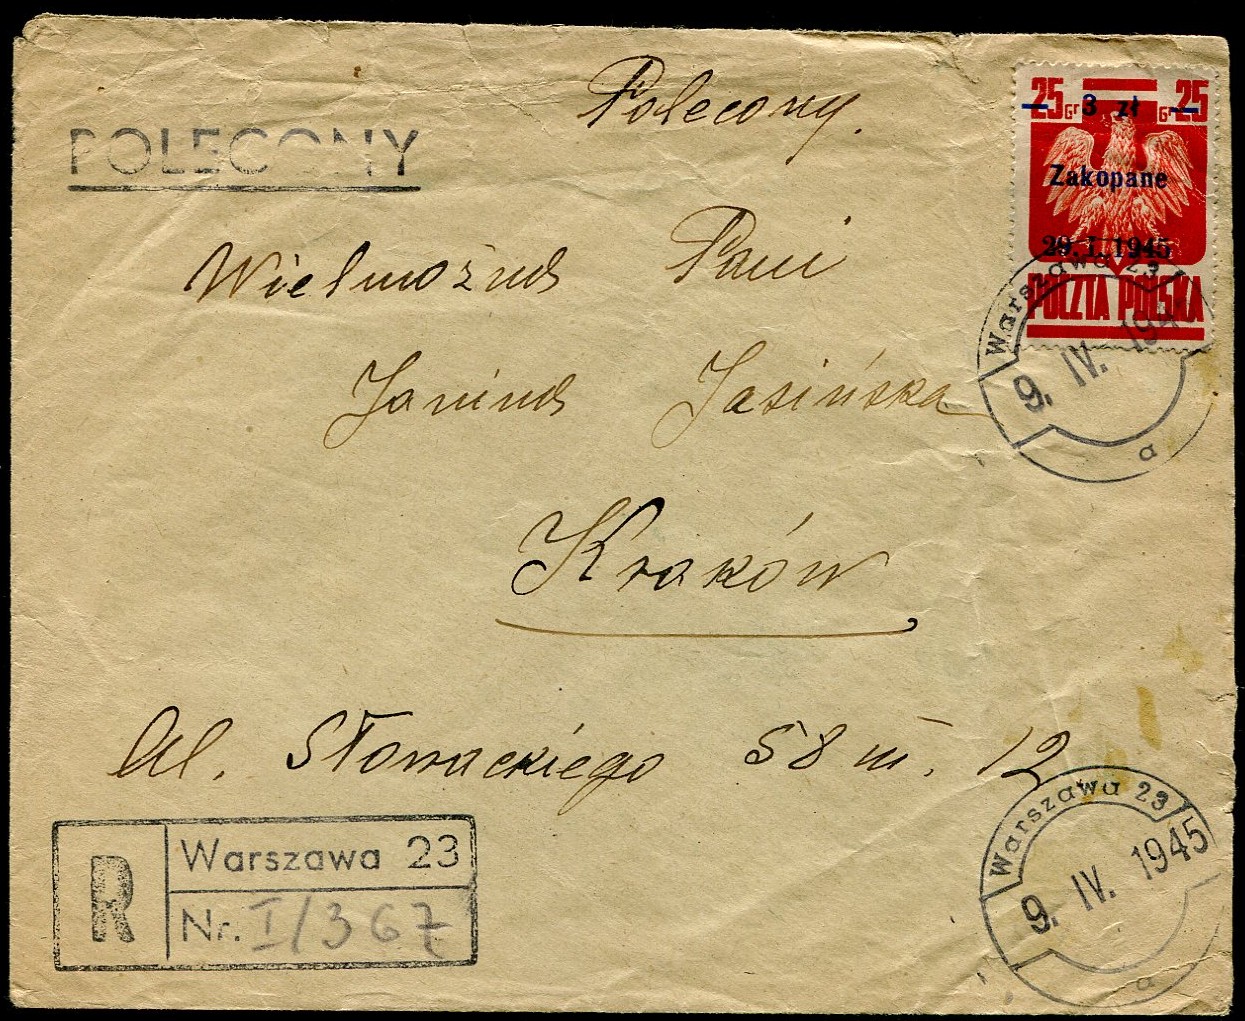 Polecony.
POLECONY
25 Gr 3 zł Gr 25
Zakopane
29. I. 1945
POCZTA POLSKA
Warszawa 23
9. IV. 1945
a
Wielmożna Pani
Janina Jasińska
Kraków
Al. Słowackiego 58 m. 12
R
Warszawa 23
Nr. I/367
Warszawa 23
9. IV. 1945
a